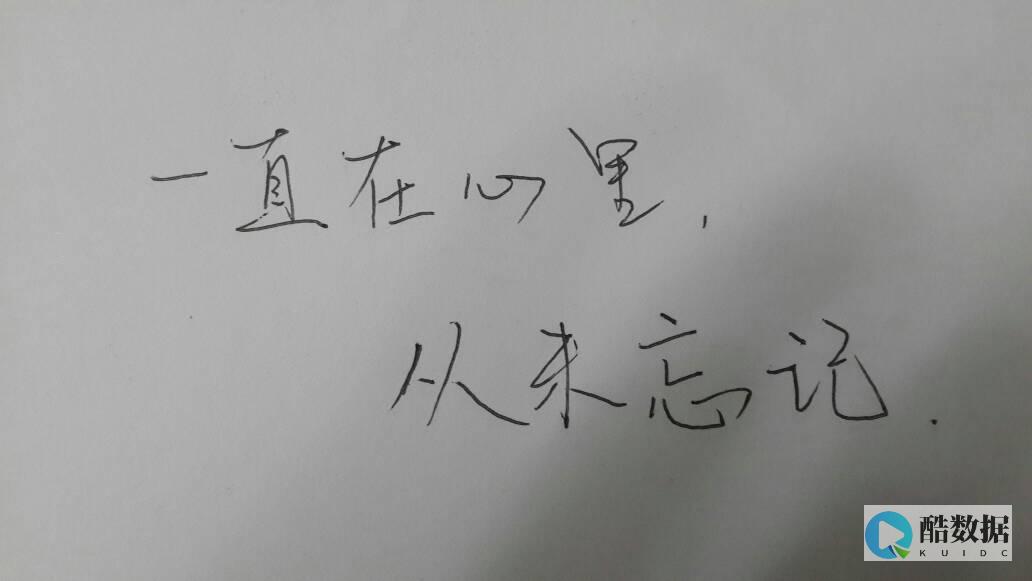 一直在心里,
从未忘记.
酷数据
KUIDC